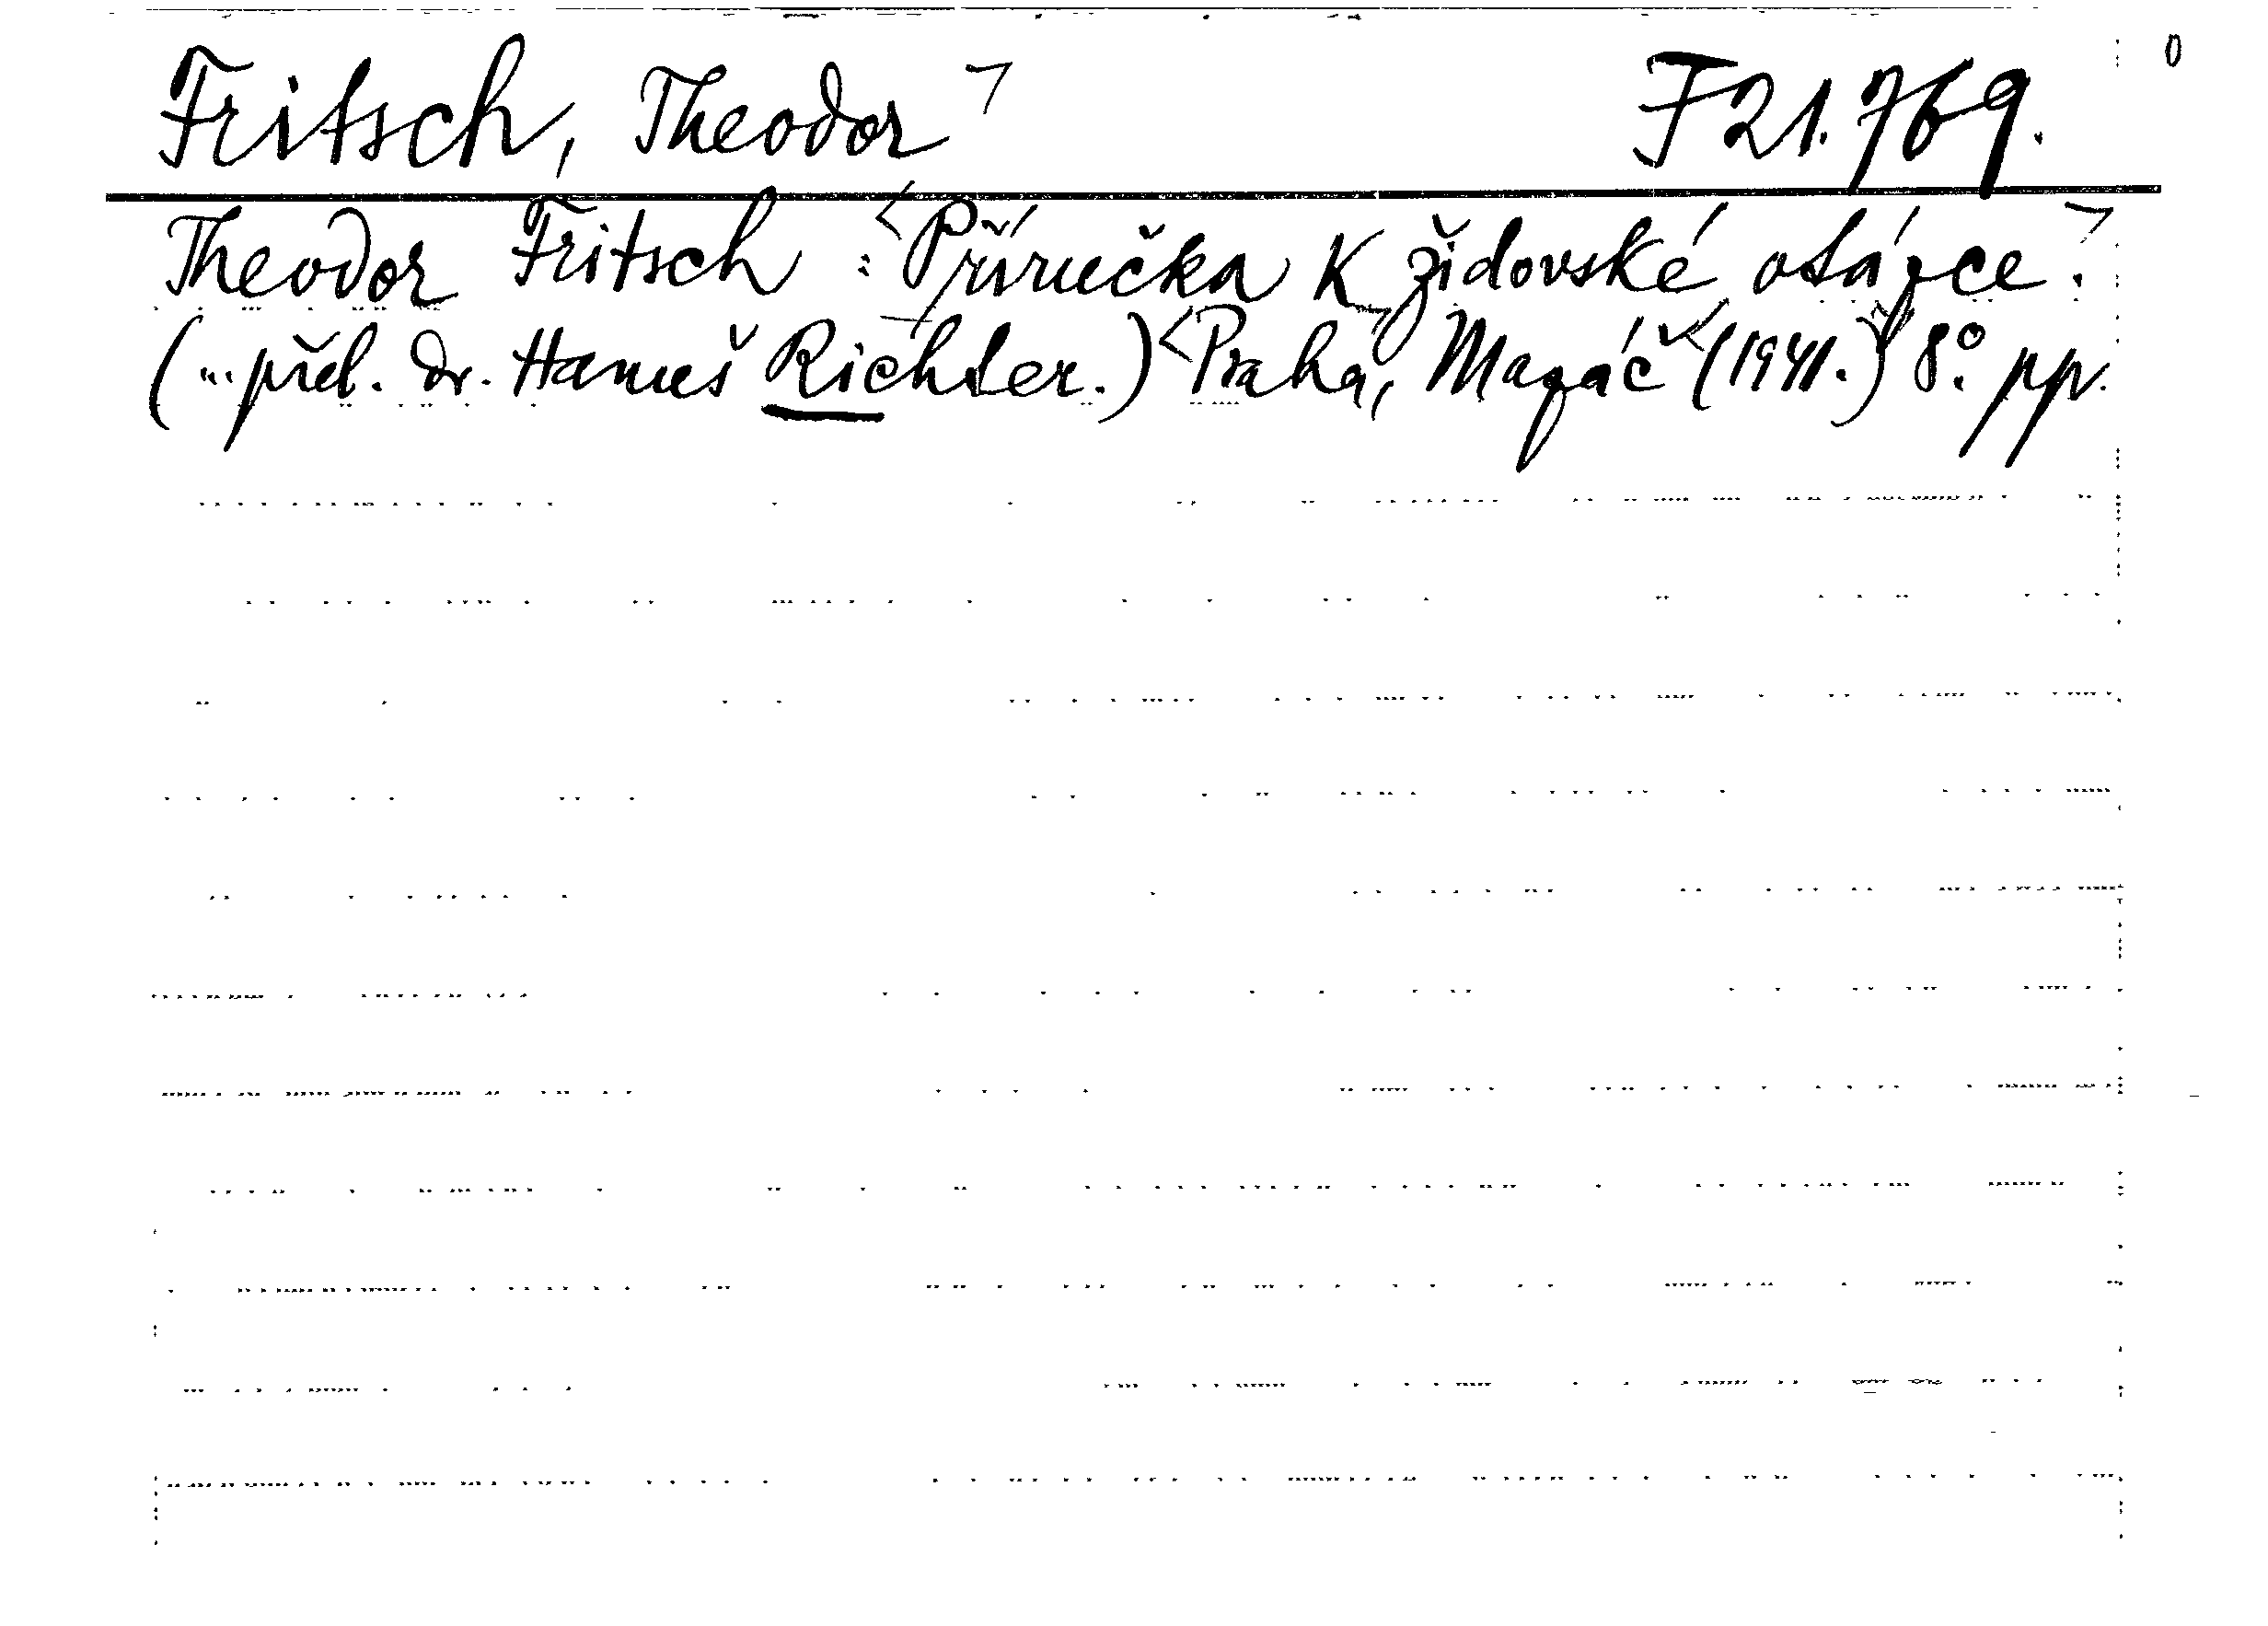 Fritsch, Theodor F 21.769.
Theodor Fritsch : Příručka k židovské otázce.
(... přel. dr. Hanuš Richter.) Praha, Mazáč (1941.) 8° pp.